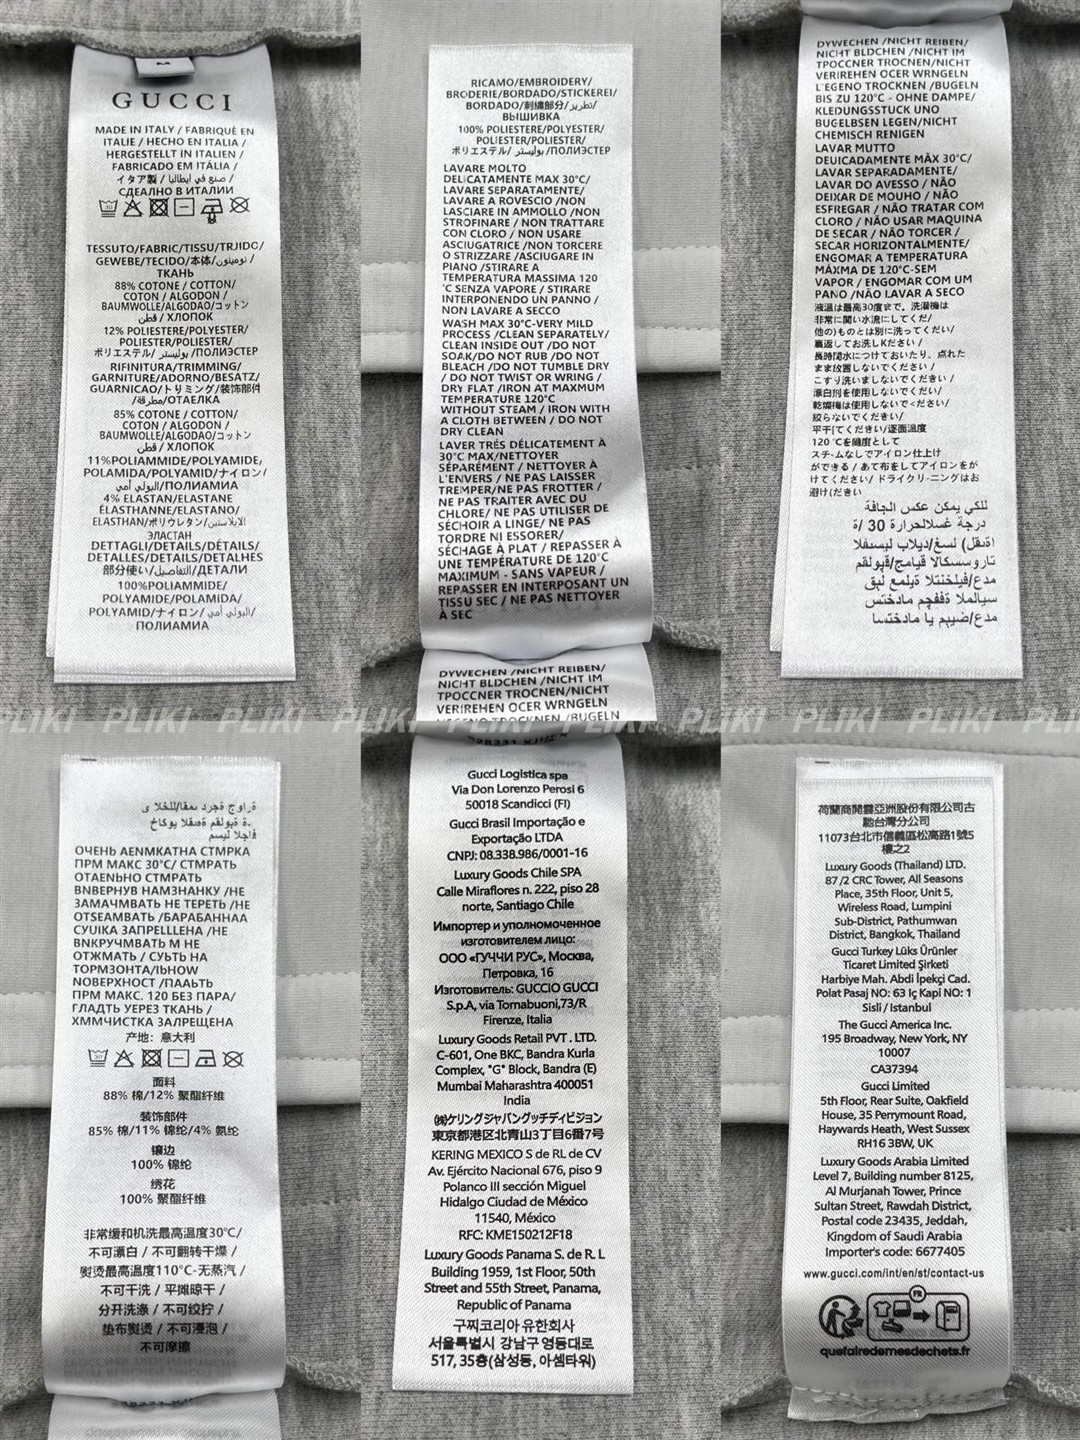 M
GUCCI
MADE IN ITALY / FABRIQUÉ EN
ITALIE / HECHO EN ITALIA /
HERGESTELLT IN ITALIEN /
FABRICADO EM ITÁLIA /
イタア製 / صنع في ايطاليا /
СДЕЛАНО В ИТАЛИИ
TESSUTO/FABRIC/TISSU/TRJIDO/
GEWEBE/TECIDO/本体/نومينون/
ТКАНЬ
88% COTONE / COTTON/
COTON / ALGODON /
BAUMWOLLE/ALGODAO/コットン
/ قطن / ХЛОПОК
12% POLIESTERE/POLYESTER/
POLIESTER/POLIESTER/
ポリエステル/ بوليستر /ПОЛИЭСТЕР
RIFINITURA/TRIMMING/
GARNITURE/ADORNO/BESATZ/
GUARNICAO/トリミング/装饰部件
/مطرقة/ОТАЕЛКА
85% COTONE / COTTON/
COTON / ALGODON /
BAUMWOLLE/ALGODAO/コットン
/ قطن / ХЛОПОК
11%POLIAMMIDE/POLYAMIDE,
POLAMIDA/POLYAMID/ナイロン/
البولي أمي/ПОЛИАМИА
4% ELASTAN/ELASTANE
ÉLASTHANNE/ELASTANO/
ELASTHAN/ポリウレタン/الايلاستين
ЭЛАСТАН
DETTAGLI/DETAILS/DÉTAILS/
DETALLES/DETAILS/DETALHES
部分使い/التفاصيل/ДЕТАЛИ
100%POLIAMMIDE/
POLYAMIDE/POLAMIDA/
POLYAMID/ナイロン/البولي أمي/
ПОЛИАМИА
RICAMO/EMBROIDERY/
BRODERIE/BORDADO/STICKEREI/
BORDADO/刺繍部分/تطريز/
ВЫШИВКА
100% POLIESTERE/POLYESTER/
POLIESTER/POLIESTER/
ポリエステル/ بوليستر /ПОЛИЭСТЕР
LAVARE MOLTO
DELICATAMENTE MAX 30°C/
LAVARE SEPARATAMENTE/
LAVARE A ROVESCIO /NON
LASCIARE IN AMMOLLO /NON
STROFINARE / NON TRATTARE
CON CLORO / NON USARE
ASCIUGATRICE /NON TORCERE
O STRIZZARE /ASCIUGARE IN
PIANO /STIRARE A
TEMPERATURA MASSIMA 120
°C SENZA VAPORE / STIRARE
INTERPONENDO UN PANNO /
NON LAVARE A SECCO
WASH MAX 30°C-VERY MILD
PROCESS /CLEAN SEPARATELY/
CLEAN INSIDE OUT /DO NOT
SOAK/DO NOT RUB /DO NOT
BLEACH / DO NOT TUMBLE DRY
/ DO NOT TWIST OR WRING /
DRY FLAT /IRON AT MAXMUM
TEMPERATURE 120°C
WITHOUT STEAM / IRON WITH
A CLOTH BETWEEN / DO NOT
DRY CLEAN
LAVER TRÉS DÉLICATEMENT À
30°C MAX/NETTOYER
SÉPARÉMENT / NETTOYER À
L'ENVERS / NE PAS LAISSER
TREMPER/NE PAS FROTTER /
NE PAS TRAITER AVEC DU
CHLORE/ NE PAS UTILISER DE
SÉCHOIR A LINGE/ NE PAS
TORDRE NI ESSORER/
SÉCHAGE À PLAT / REPASSER À
UNE TEMPÉRATURE DE 120°C
MAXIMUM - SANS VAPEUR /
REPASSER EN INTERPOSANT UN
TISSU SEC / NE PAS NETTOYER
À SEC
DYWECHEN /NICHT REIBEN/
NICHT BLDCHEN /NICHT IM
TPOCCNER TROCNEN/NICHT
VERIREHEN OCER WRNGELN
TROCKNEN /BUGELN
DYWECHEN /NICHT REIBEN/
NICHT BLDCHEN /NICHT IM
TPOCCNER TROCNEN/NICHT
VERIREHEN OCER WRNGELN
L'EGENO TROCNEN /BUGELN
BIS ZU 120°C - OHNE DAMPE/
KLEIDUNGSSTUCK UNO
BUGELBSEN LEGEN/NICHT
CHEMISCH RENIGEN
LAVAR MUTTO
DEUICADAMENTE MÁX 30°C/
LAVAR SEPARADAMENTE/
LAVAR DO AVESSO / NÃO
DEIXAR DE MOUHO / NÃO
ESFREGAR / NÃO TRATAR COM
CLORO / NÃO USAR MAQUINA
DE SECAR / NÃO TORCER /
SECAR HORIZONTALMENTE/
ENGOMAR A TEMPERATURA
MÁXMA DE 120°C-SEM
VAPOR / ENGOMAR COM UM
PANO /NÃO LAVAR A SECO
液温は最高30度まで。洗濯機は
非常に関い水流にしてくだ/
他のものとは別に洗ってくだい/
裏返してお洗しKださい/
長時間水につけておいたり、点れた
まま放置しないでください/
こすり洗いましないでくだきい /
漂白剤を使用しないでくだい/
乾燥機は使用しないでください/
絞らないでください/
平干してください/逐面温度
120°Cを随度として
スチ-ムなしでアイロン仕上け
ができる / あて布をしてアイロンをが
けてください/ ドライクリ-ニングはお
避けださい
للكي يمكن عكس الجافة
درجة غسلالحرارة 30 /ة
PLIKI PLIKI PLIKI PLIKI PLIKI PLIKI PLIKI PLIKI PLIKI PLIKI
ОЧЕНЬ АЕNМКАТНА СТМРКА
ПРМ МАКС 30°C/ СТМРАТЬ
ОТАЕNЬНО СТМРАТЬ
ВNВЕРНУВ НАМЗНАНКУ /НЕ
ЗАМАЧМВАТЬ НЕ ТЕРЕТЬ /НЕ
ОТSЕАМВАТЬ /БАРАБАННАА
СУUIКА ЗАПРЕLLLЕНА /НЕ
ВNКРУЧМВАТЬ М НЕ
ОТЖМАТЬ / СУЬТЬ НА
ТОРМЗОНТА/IЬНОW
NОВЕРХНОСТ /ПААЬТЬ
ПРМ МАКС. 120 БЕЗ ПАРА/
ГЛАДТЬ УЕРЕЗ ТКАНЬ /
ХММЧИСТКА ЗАЛРЕЩЕНА
产地: 意大利
面料
88% 棉/12% 聚酯纤维
装饰部件
85% 棉/11% 锦纶/4% 氨纶
镶边
100% 锦纶
绣花
100% 聚酯纤维
非常缓和机洗最高温度30℃/
不可漂白 / 不可翻转干燥 /
熨烫最高温度110°C-无蒸汽 /
不可干洗 / 平摊晾干 /
分开洗涤 / 不可绞拧 /
垫布熨烫 / 不可浸泡 /
不可摩擦
Gucci Logistica spa
Via Don Lorenzo Perosi 6
50018 Scandicci (FI)
Gucci Brasil Importação e
Exportação LTDA
CNPJ: 08.338.986/0001-16
Luxury Goods Chile SPA
Calle Miraflores n. 222, piso 28
norte, Santiago Chile
Импортер и уполномоченное
изготовителем лицо:
ООО «ГУЧЧИ РУС», Москва,
Петровка, 16
Изготовитель: GUCCIO GUCCI
S.p.A, via Tornabuoni,73/R
Firenze, Italia
Luxury Goods Retail PVT . LTD.
C-601, One BKC, Bandra Kurla
Complex, "G" Block, Bandra (E)
Mumbai Maharashtra 400051
India
㈱ケリングジャバングッチディビジョン
東京都港区北青山3丁目6番7号
KERING MEXICO S de RL de CV
Av. Ejército Nacional 676, piso 9
Polanco III sección Miguel
Hidalgo Ciudad de México
11540, México
RFC: KME150212F18
Luxury Goods Panama S. de R. L
Building 1959, 1st Floor, 50th
Street and 55th Street, Panama,
Republic of Panama
구찌코리아 유한회사
서울특별시 강남구 영동대로
517, 35층(삼성동, 아셈타워)
荷蘭商開雲亞洲股份有限公司古
馳台灣分公司
11073台北市信義區松高路1號5
樓之2
Luxury Goods (Thailand) LTD.
87 /2 CRC Tower, All Seasons
Place, 35th Floor, Unit 5,
Wireless Road, Lumpini
Sub-District, Pathumwan
District, Bangkok, Thailand
Gucci Turkey Lüks Ürünler
Ticaret Limited Şirketi
Harbiye Mah. Abdi İpekçi Cad.
Polat Pasaj NO: 63 Iç Kapi NO: 1
Sisli / Istanbul
The Gucci America Inc.
195 Broadway, New York, NY
10007
CA37394
Gucci Limited
5th Floor, Rear Suite, Oakfield
House, 35 Perrymount Road,
Haywards Heath, West Sussex
RH16 3BW, UK
Luxury Goods Arabia Limited
Level 7, Building number 8125,
Al Murjanah Tower, Prince
Sultan Street, Rawdah District,
Postal code 23435, Jeddah,
Kingdom of Saudi Arabia
Importer's code: 6677405
www.gucci.com/int/en/st/contact-us
FR
quefairedemesdechets.fr